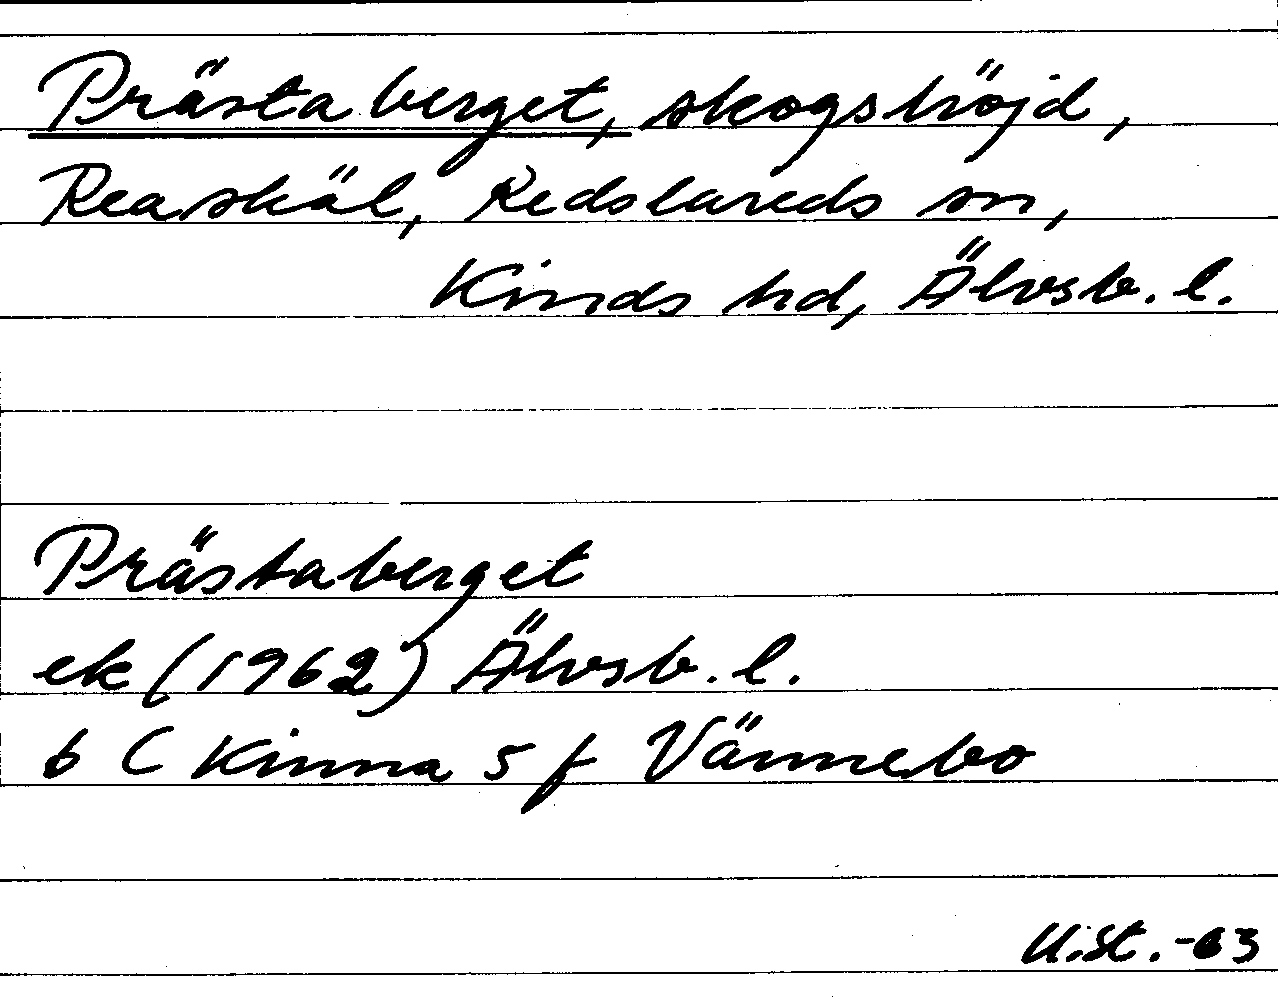 Prästaberget, skogshöjd,
Reaskäl, Redslareds sn,
Kinds hd, Älvsb. l.
Prästaberget
ek (1962) Älvsb. l.
6 C Kinna 5 f Vännebo
U.St. -63